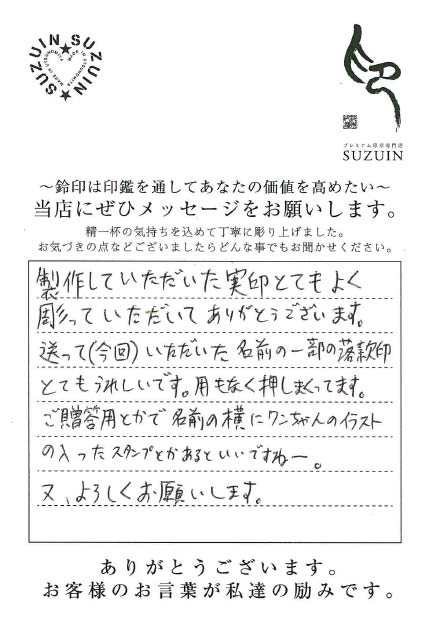 SUZUIN★SUZUIN★
プレミアム印章専門店
SUZUIN
～鈴印は印鑑を通してあなたの価値を高めたい～
当店にぜひメッセージをお願いします。
精一杯の気持ちを込めて丁寧に彫り上げました。
お気づきの点などございましたらどんな事でもお聞かせください。
製作していただいた実印とてもよく
彫っていただいてありがとうございます。
送って(今回)いただいた名前の一部の落款印
とてもうれしいです。用もなく押しまくってます。
ご贈答用とかで名前の横にワンちゃんのイラスト
の入ったスタンプとかあるといいですねー。
又、よろしくお願いします。
ありがとうございます。
お客様のお言葉が私達の励みです。